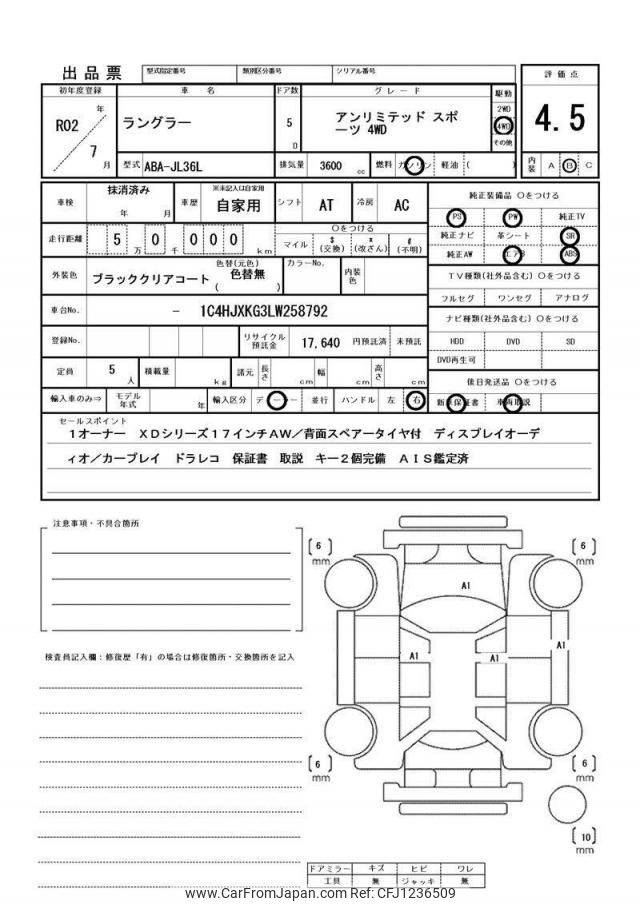 出品票 型式指定番号 類別区分番号 シリアル番号
評価点
4.5
内装 A B C
初年度登録 車名 ドア数 グレード 駆動
R02 年 7 月
ラングラー
5 D
アンリミテッド スポーツ 4WD
2WD
4WD
その他
型式 ABA-JL36L 排気量 3600 cc 燃料 ガソリン 軽油 ( )
車検 抹消済み 年 月 車歴 ※未記入は自家用 自家用 シフト AT 冷房 AC
走行距離 5 万 0 千 0 0 0 km
○をつける
マイル $(交換) *(改ざん) #(不明)
外装色 ブラッククリアコート 色替(元色) 色替無 ( ) カラーNo. 内装色
車台No. - 1C4HJXKG3LW258792
登録No. リサイクル預託金 17,640 円預託済 未預託
定員 5 人 積載量 kg 諸元 長さ cm 幅 cm 高さ cm
輸入車のみ⇒ モデル年式 年 輸入区分 ディーラー 並行 ハンドル 左 右
純正装備品 ○をつける
PS PW 純正TV
純正ナビ 革シート SR
純正AW エアB ABS
TV種類(社外品含む) ○をつける
フルセグ ワンセグ アナログ
ナビ種類(社外品含む) ○をつける
HDD DVD SD
DVD再生可
後日発送品 ○をつける
新車保証書 車両取説
セールスポイント
1オーナー XDシリーズ17インチAW/背面スペアータイヤ付 ディスプレイオーデ
ィオ/カープレイ ドラレコ 保証書 取説 キー2個完備 AIS鑑定済
注意事項・不具合箇所
検査員記入欄：修復歴「有」の場合は修復箇所・交換箇所を記入
[6] mm
[6] mm
A1
A1
A1
A1
[6] mm
[6] mm
[10] mm
ドアミラー キズ ヒビ ワレ
工具 無 ジャッキ 無
www.CarFromJapan.com Ref: CFJ1236509